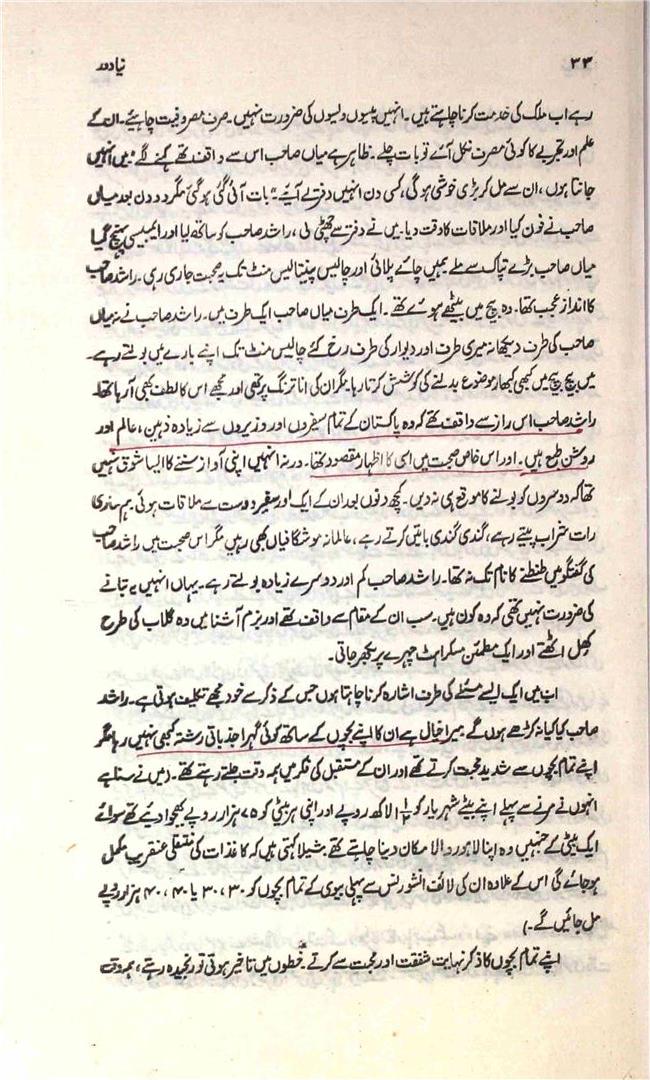 ۳۴ نیا دور
رہے اب ملک کی خدمت کرنا چاہتے ہیں۔ انہیں پیسوں ویسوں کی ضرورت نہیں۔ صرف مصروفیت چاہیئے۔ ان کے
علم اور تجربے کا کوئی مصرف نکل آئے تو بات چلے۔ ظاہر ہے میاں صاحب اس سے واقف تھے کہنے لگے "میں انہیں
جانتا ہوں، ان سے مل کر بڑی خوشی ہوگی، کسی دن انہیں دفتر لے آیئے۔" بات آئی گئی ہوگئی مگر دو دن بعد میاں
صاحب نے فون کیا اور ملاقات کا وقت دیا۔ میں نے دفتر سے چھٹی لی، راشد صاحب کو ساتھ لیا اور ایمبیسی پہنچ گیا
میاں صاحب بڑے تپاک سے ملے ہمیں چائے پلائی اور چالیس پینتالیس منٹ تک یہ صحبت جاری رہی۔ راشد صاحب
کا انداز عجب تھا۔ وہ بیچ میں بیٹھے ہوئے تھے۔ ایک طرف میاں صاحب ایک طرف میں۔ راشد صاحب نے نہ میاں
صاحب کی طرف دیکھا نہ میری طرف اور دیوار کی طرف رخ کئے چالیس منٹ تک اپنے بارے میں بولتے رہے۔
میں بیچ بیچ میں کبھی کبھار موضوع بدلنے کی کوشش کرتا رہا۔ مگر ان کی انا ترنگ پر تھی اور مجھے اس کا لطف بھی آ رہا تھا۔
راشد صاحب اس راز سے واقف تھے کہ وہ پاکستان کے تمام سفیروں اور وزیروں سے زیادہ ذہین، عالم اور
روشن طبع ہیں۔ اور اس خاص صحبت میں اسی کا اظہار مقصود تھا۔ ورنہ انہیں اپنی آواز سننے کا ایسا شوق نہیں
تھا کہ دوسروں کو بولنے کا موقع ہی نہ دیں۔ کچھ دنوں بعد ان کے ایک اور سفیر دوست سے ملاقات ہوئی۔ ہم ساری
رات شراب پیتے رہے، گندی گندی باتیں کرتے رہے، عالمانہ موشگافیاں بھی رہیں مگر اس صحبت میں راشد صاحب
کی گفتگو میں طنطنے کا نام تک نہ تھا۔ راشد صاحب کم اور دوسرے زیادہ بولتے رہے۔ یہاں انہیں یہ بتانے
کی ضرورت نہیں تھی کہ وہ کون ہیں۔ سب ان کے مقام سے واقف تھے اور بزم آشنا میں وہ گلاب کی طرح
کھل اٹھتے اور ایک مطمئن مسکراہٹ چہرے پر بکھر جاتی۔
اب میں ایک ایسے مسئلے کی طرف اشارہ کرنا چاہتا ہوں جس کے ذکر سے خود مجھے تکلیف ہوتی ہے۔ راشد
صاحب کیا کیا نہ کڑھے ہوں گے۔ میرا خیال ہے ان کا اپنے بچوں کے ساتھ کوئی گہرا جذباتی رشتہ کبھی نہیں رہا مگر
اپنے تمام بچوں سے شدید محبت کرتے تھے اور ان کے مستقبل کی فکر میں ہمہ وقت جلتے رہتے تھے۔ (میں نے سنا ہے
انہوں نے مرنے سے پہلے اپنے بیٹے شہریار کو ۱½ لاکھ روپے اور اپنی ہر بیٹی کو ۷۵ ہزار روپے بھجوا دیئے تھے سوائے
ایک بیٹی کے جنہیں وہ اپنا لاہور والا مکان دینا چاہتے تھے۔ شیلا کہتی ہیں کہ کاغذات کی منتقلی عنقریب مکمل
ہو جائے گی اس کے علاوہ ان کی لائف انشورنس سے پہلی بیوی کے تمام بچوں کو ۳۰، ۳۰ یا ۴۰، ۴۰ ہزار روپے
مل جائیں گے۔)
اپنے تمام بچوں کا ذکر نہایت شفقت اور محبت سے کرتے۔ خطوں میں تاخیر ہوتی تو رنجیدہ رہتے، ہمہ وقت